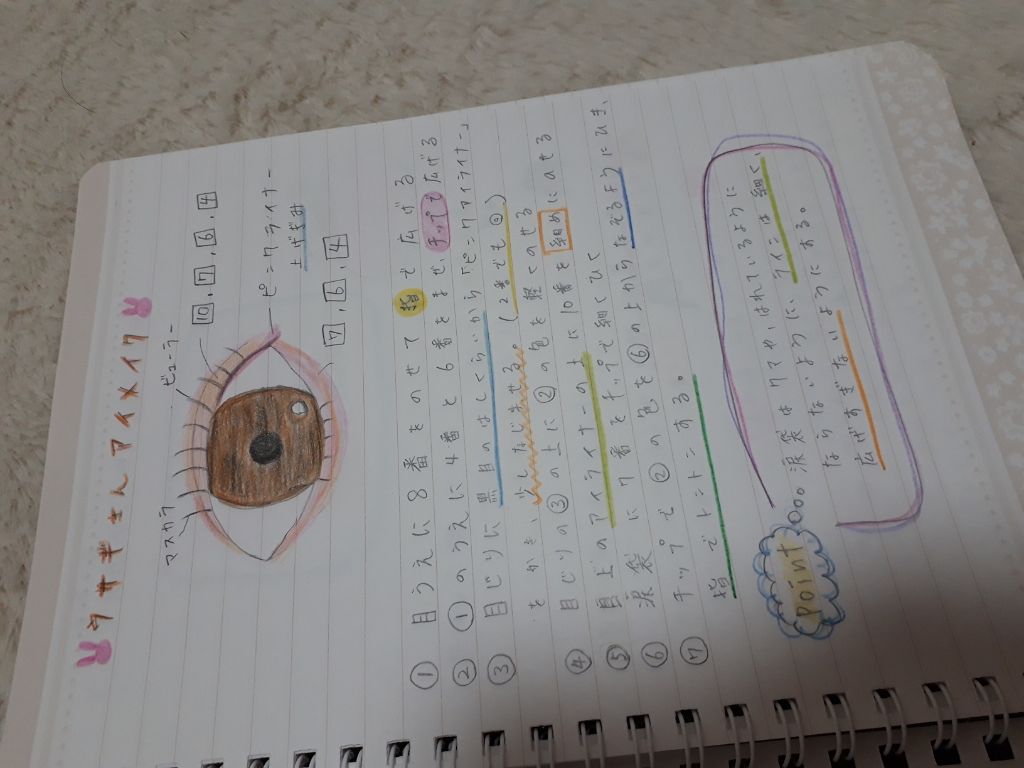 ウサギさんアイメイク
マスカラ
ビューラー
10, 7, 6, 4
ピンクライナー
上げぎみ
7, 6, 4
① 目うえに8番をのせて指で広げる
② ①のうえに4番と6番をまぜチップで広げる
③ 目じりに黒目のはしくらいから「ピンクアイライナー」
をかき、少しなじませる。(2番でも◎)
④ 目じりの③の上に②の色を軽くのせる
⑤ 目上のアイライナーの上に10番を細めにのせる
⑥ 涙袋に7番をチップで細くひく
⑦ チップで②の色を⑥の上からなぞるようにひき、
指でトントンする。
Point
涙袋はクマやはれているように
ならないように、ラインは細く、
広げすぎないようにする。